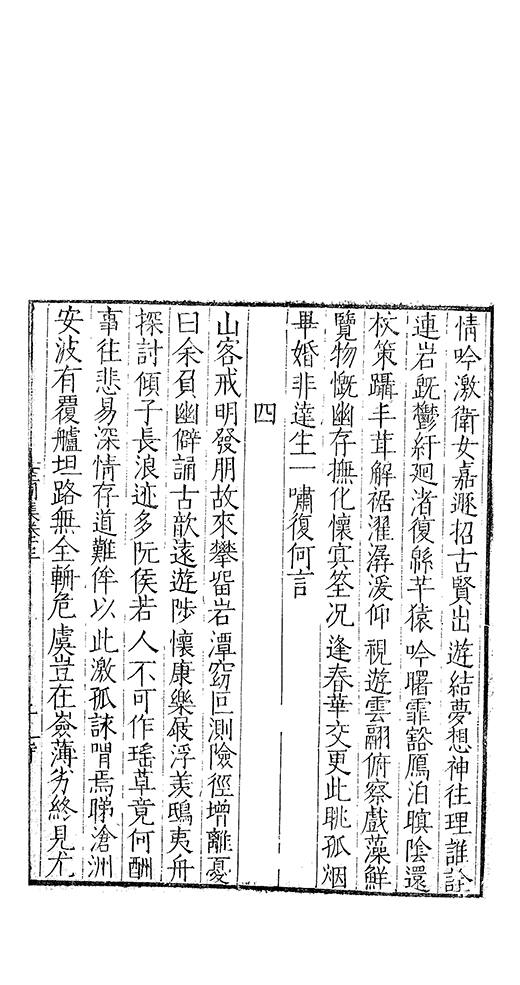 情吟激衛女嘉遯招古賢出遊結夢想神往理誰詮
連岩既鬱紆廻渚復緜芊猿吟曙霏豁鴈泊暝陰還
杖策躡丰茸解裾濯潺湲仰視遊雲翮俯察戲藻鮮
覽物慨幽存撫化懷㝠筌况逢春華交更此眺孤烟
畢婚非達生一嘯復何言
四
山客戒明發朋故來攀畱岩潭窈叵測險徑增離憂
曰余負幽僻誦古歆遠遊陟懷康樂屐浮羨鴟夷舟
探討傾子長浪迹多阮侯若人不可作瑶草竟何酬
事往悲易深情存道難侔以此激孤詠喟焉睇滄洲
安波有覆艫坦路無全輈危虞豈在嶔薄劣終見尤